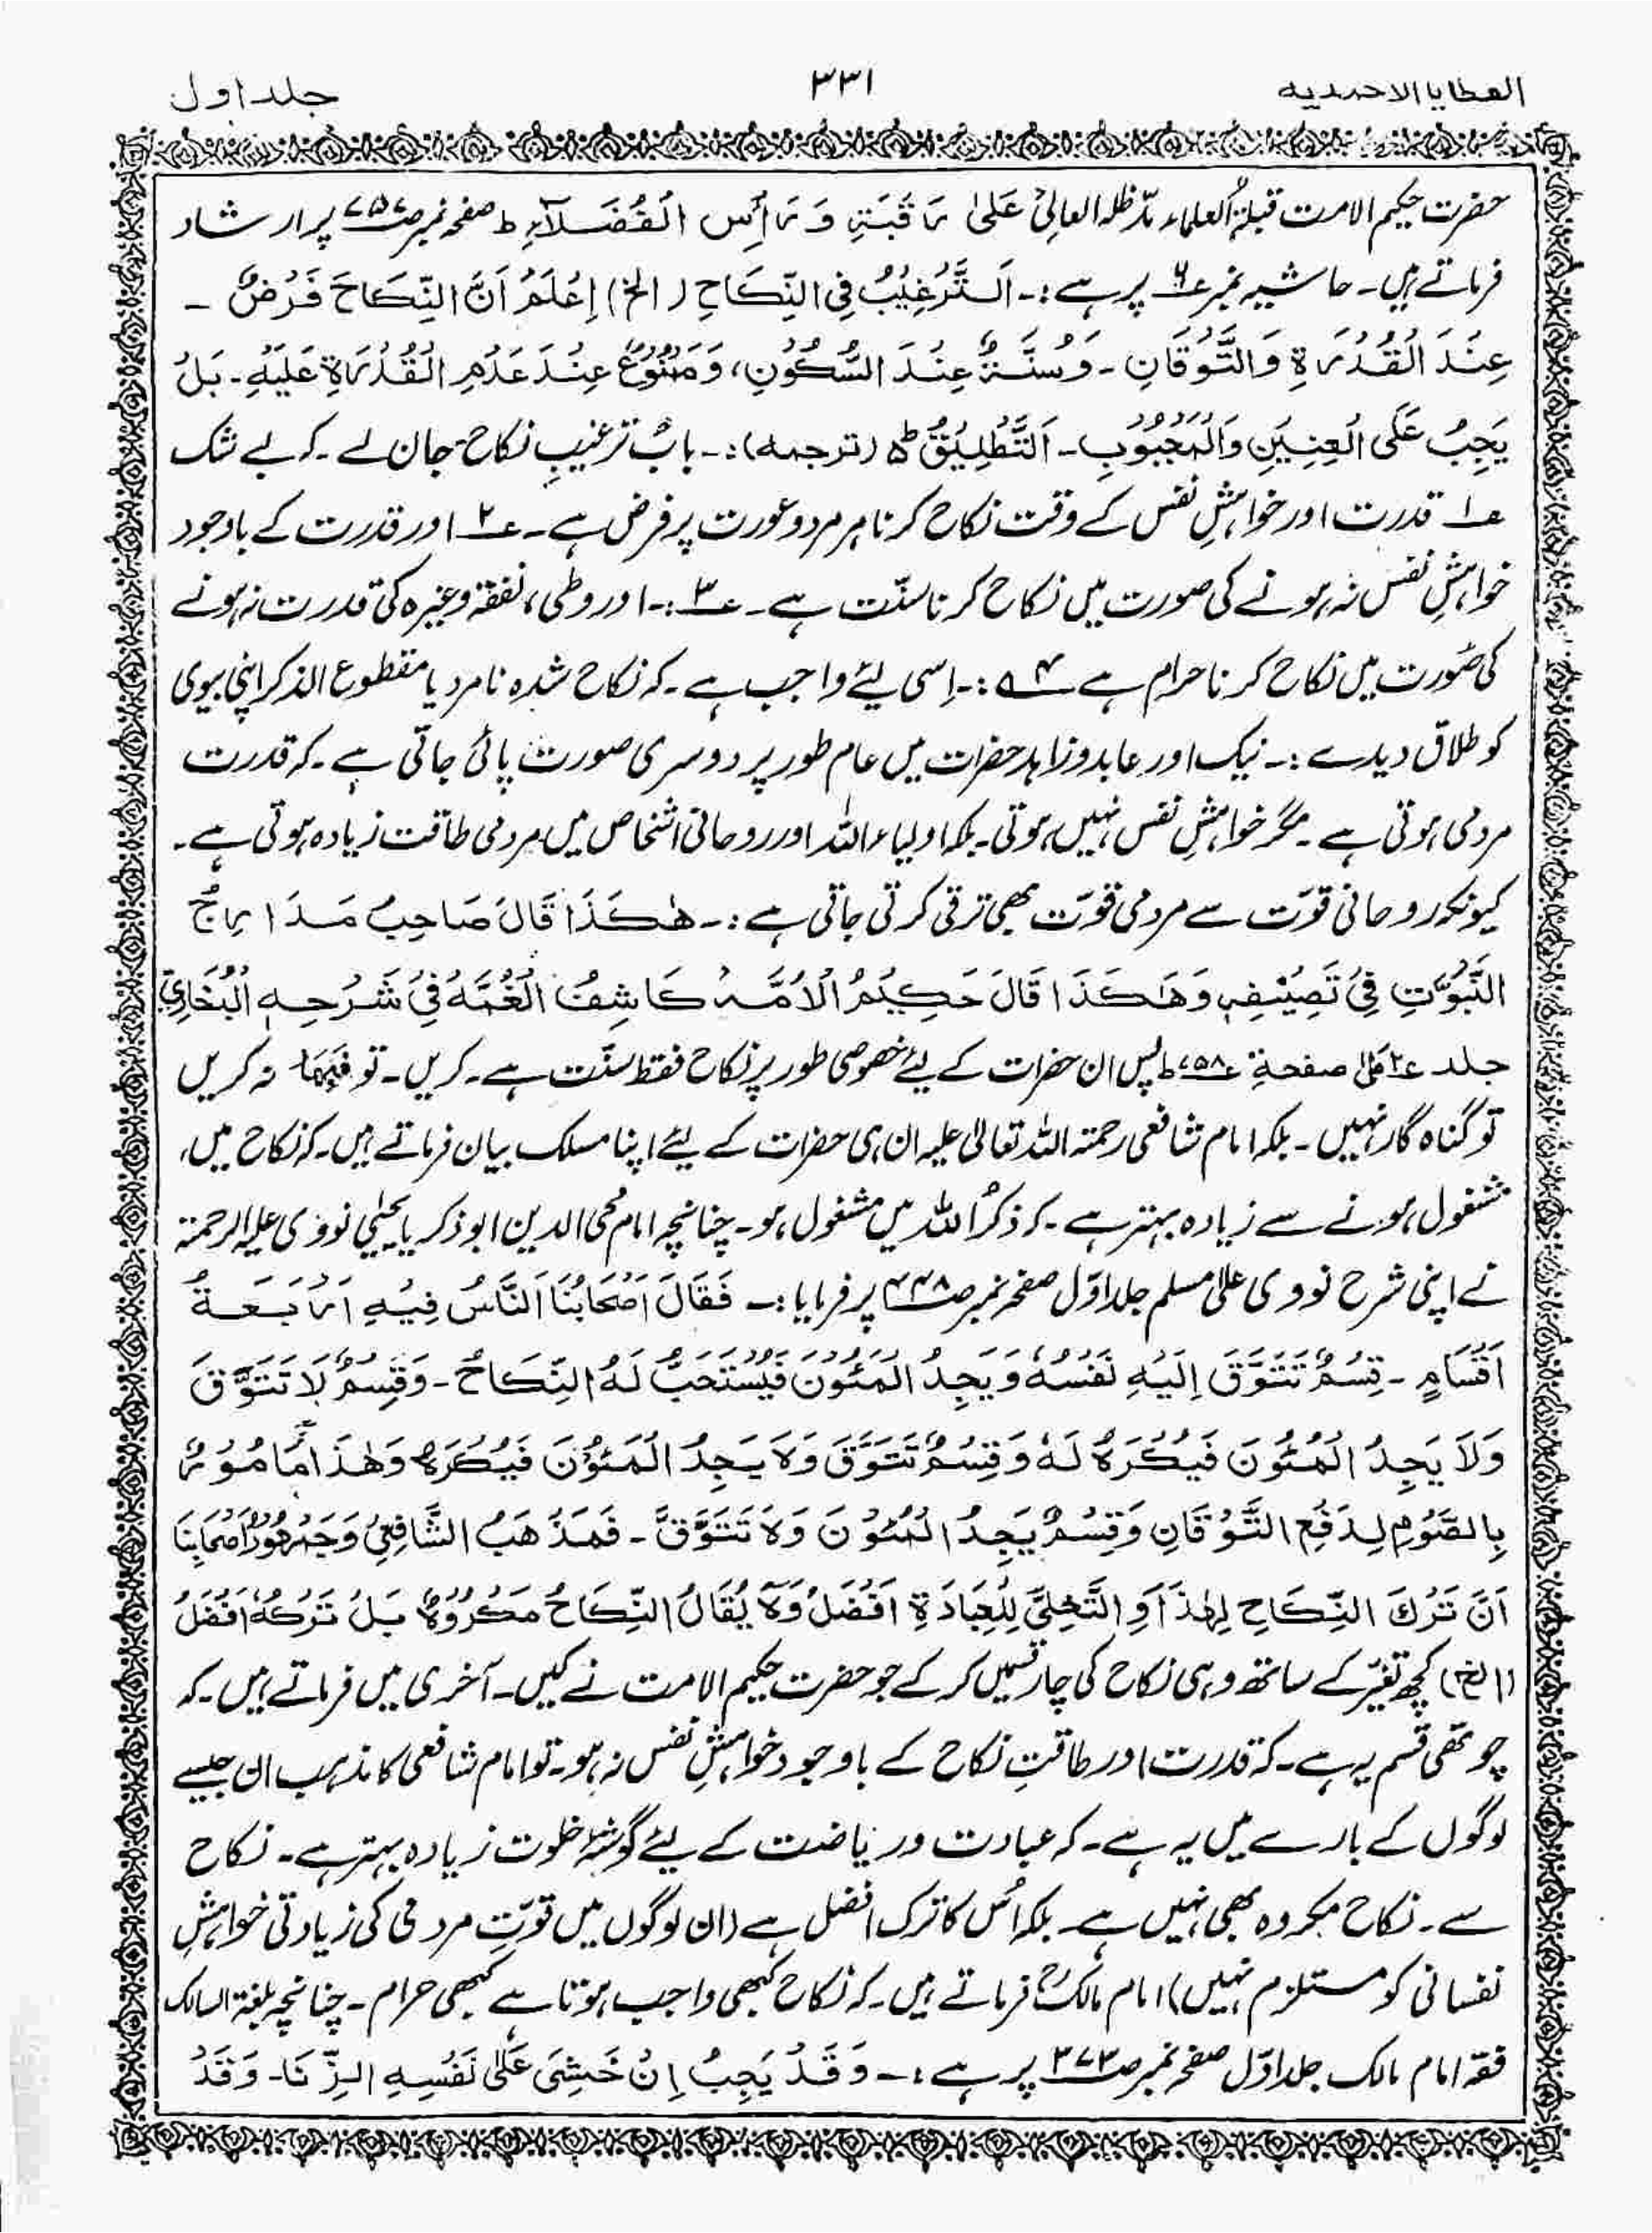 العطایا الاحمدیہ
۳۳۱
جلد اول
حضرت حکیم الامت قبلۃُ العلماء مدّ ظلہ العالی عَلیٰ رَقَبَۃِ وَ رَأسِ الْفُضَلَآءِ ط صفحہ نمبر صـ۷۵۷ پر ارشاد
فرماتے ہیں۔ حاشیہ نمبر عـ۶ پر ہے:۔ اَلتَّرْغِیْبُ فِی النِّکَاحِ (الخ) اِعْلَمْ اَنَّ النِّکَاحَ فَرْضٌ ۔
عِنْدَ الْقُدْرَۃِ وَالتَّوْقَانِ۔ وَسُنَّۃٌ عِنْدَ السُّکُوْنِ، وَمَمْنُوْعٌ عِنْدَ عَدَمِ الْقُدْرَۃِ عَلَیْہِ۔ بَلْ
یَجِبُ عَلَی الْعِنِیْنِ وَالْمَجْبُوْبِ۔ اَلتَّطْلِیْقُ ط۵ (ترجمہ):۔ بابُ ترغیبِ نکاح۔ جان لے۔ کہ بے شک
عـ۱ قدرت اور خواہشِ نفس کے وقت نکاح کرنا ہر مرد و عورت پر فرض ہے۔ عـ۲ اور قدرت کے باوجود
خواہشِ نفس نہ ہونے کی صورت میں نکاح کرنا سنّت ہے۔ عـ۳:۔ اور وطی، نفقہ وغیرہ کی قدرت نہ ہونے
کی صُورت میں نکاح کرنا حرام ہے عـ۴:۔ اِسی لیئے واجب ہے۔ کہ نکاح شدہ نامرد یا مقطوع الذکر اپنی بیوی
کو طلاق دیدے:۔ نیک اور عابد و زاہد حضرات میں عام طور پر دوسری صورت پائی جاتی ہے۔ کہ قدرت
مردمی ہوتی ہے۔ مگر خواہشِ نفس نہیں ہوتی۔ بلکہ اولیاء اللہ اور روحانی اشخاص میں مردمی طاقت زیادہ ہوتی ہے۔
کیونکہ روحانی قوّت سے مردمی قوّت بھی ترقی کرتی جاتی ہے:۔ ھٰکَذَا قَالَ صَاحِبُ مَدَارِجُ
النَّبُوَّتِ فِیْ تَصِیْنْفِہٖ وَھٰکَذَا قَالَ حَکِیْمُ الْاُمَّہْ کَاشِفُ الْغُمَّہْ فِیْ شَرْحِہِ الْبُخَارِیْ
جلد عـ۲ صفحۃ عـ۷۵۸ ط پس ان حضرات کے لیئے خصوصی طور پر نکاح فقط سنّت ہے۔ کریں۔ تو فَبِہَا نہ کریں
تو گناہ گار نہیں۔ بلکہ امام شافعی رحمتہ اللہ تعالیٰ علیہ ان ہی حضرات کے لیئے اپنا مسلک بیان فرماتے ہیں۔ کہ نکاح میں،
مشغول ہونے سے زیادہ بہتر ہے۔ کہ ذکرُ اللہ میں مشغول ہو۔ چنانچہ امام محی الدین ابو ذکریا یحیٰی نووی علیہ الرحمتہ
نے اپنی شرح نووی علیٰ مسلم جلد اوّل صفحہ نمبر صـ۴۴۸ پر فرمایا:۔ فَقَالَ اَصْحَابُنَا النَّاسُ فِیْہِ اَرْبَعَۃُ
اَقْسَامٍ ۔ قِسْمٌ تَتَوَّقَ اِلَیْہِ نَفْسُہٗ وَ یَجِدُ الْمَئُوْنَ فَیُسْتَحَبُّ لَہُ النِّکَاحُ۔ وَقِسْمٌ لَا تَتَوَّقَ
وَلَا یَجِدُ الْمُئُوْنَ فَیُکْرَہٗ لَہٗ وَقِسْمٌ تَتَوَّقَ وَلَا یَجِدُ الْمَئُوْنَ فَیُکْرَہٗ وَھٰذَا مَامُوْرٌ
بِالصَّوْمِ لِدَفْعِ التَّوْقَانِ وَقِسْمٌ یَجِدُ الْمُئُوْنَ وَلَا تَتَوَّقَّ۔ فَمَذْھَبُ الشَّافِعِیْ وَجَمْھُوْرُ اَصْحَابِنَا
اَنَّ تَرْکَ النِّکَاحِ لِھٰذَ اَوِ التَّخَلِّیَّ لِلْعِبَادَۃِ اَفْضَلُ وَلَا یُقَالُ النِّکَاحُ مَکْرُوْہٌ بَلْ تَرْکُہٗ اَفْضَلُ
(الخ) کچھ تغیّر کے ساتھ وہی نکاح کی چار قسمیں کر کے جو حضرت حکیم الامت نے کیں۔ آخری میں فرماتے ہیں۔ کہ
چوتھی قسم یہ ہے۔ کہ قدرت اور طاقتِ نکاح کے باوجود خواہشِ نفس نہ ہو۔ تو امام شافعی کا مذہب ان جیسے
لوگوں کے بارے میں یہ ہے۔ کہ عبادت و ریاضت کے لیئے گوشۂ خلوت زیادہ بہتر ہے۔ نکاح
سے۔ نکاح مکروہ بھی نہیں ہے۔ بلکہ اُس کا ترک افضل ہے (ان لوگوں میں قوّتِ مردمی کی زیادتی خواہشِ
نفسانی کو مستلزم نہیں) امام مالکؒ فرماتے ہیں۔ کہ نکاح کبھی واجب ہوتا ہے کبھی حرام۔ چنانچہ بلغۃ السالک
فقہ امام مالک جلد اوّل صفحہ نمبر صـ۳۷۳ پر ہے:۔ وَقَدْ یَجِبُ اِنْ خَشِیَ عَلیٰ نَفْسِہِ الزِّنَا۔ وَقَدْ